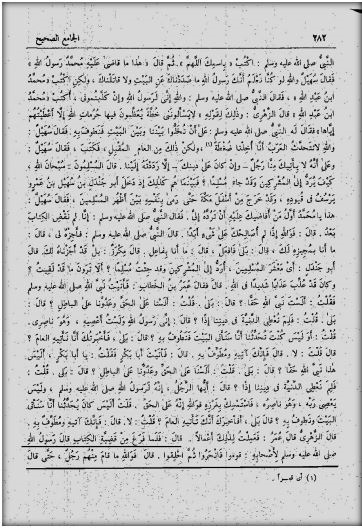 ٢٨٢ الجامع الصحيح
النَّبِيُّ صلى الله عليه وسلم : اكْتُبْ بِاسْمِكَ اللَّهُمَّ ، ثُمَّ قالَ « هٰذا ما قاضىٰ عَلَيْهِ مُحَمَّدٌ رَسُولُ اللهِ »
فَقَالَ سُهَيْلٌ وَاللهِ لو كُنَّا نَعْلَمُ أَنَّكَ رَسُولُ اللهِ ما صَدَدْناكَ عَنِ البَيْتِ ولا قاتَلْناكَ ، ولكِنِ اكْتُبْ « مُحَمَّدُ
ابنُ عَبدِ اللهِ » ، فَقَالَ النَّبِيُّ صلى الله عليه وسلم : واللهِ إنِّي لَرَسولُ اللهِ وإنْ كَذَّبْتُموني ، اكْتُبْ « مُحَمَّدُ
ابنُ عبدِ اللهِ » قالَ الزُّهْرِيُّ : وذلِكَ لِقَولِهِ « لايَسْأَلُونِي خُطَّةً يُعَظِّمُونَ فيها حُرُماتِ اللهِ إلَّا أَعْطَيْتُهُمْ
إيَّاها » فقَالَ لَهُ النَّبِيُّ صلى الله عليه وسلم : عَلىٰ أنْ تُخَلُّوا بَيْنَنا وبَيْنَ البَيْتِ فَنَطوفَ بِهِ . فقَالَ سُهَيْلٌ :
واللهِ لاتَتَحَدَّثُ العَرَبُ أنَّا أُخِذْنا ضُغْطَةً (١) ، ولكنْ ذلِكَ مِنَ العامِ المُقبِلِ ، فَكَتَبَ ، فَقَالَ سُهَيْلٌ :
وعَلىٰ أنَّهُ لا يأتيكَ مِنَّا رَجُلٌ ـ وإنْ كانَ عَلىٰ دينِكَ ـ إلَّا رَدَدْتَهُ إلَيْنا . قالَ المُسْلِمونَ : سُبْحانَ اللهِ ،
كيفَ يُرَدُّ إلى المُشْرِكينَ وقَد جاءَ مُسْلِماً ؟ فَبَيْنَما هُم كذلِكَ إذ دَخَلَ أبو جَنْدَلِ بنُ سُهَيْلِ بنِ عَمْرٍو
يَرْسُفُ في قُيودِهِ ، وقَد خَرَجَ مِن أسْفَلِ مَكَّةَ حَتَّى رَمىٰ بِنَفْسِهِ بَيْنَ أظهُرِ المُسْلِمينَ ، فقَالَ سُهَيْلٌ :
هذا يامُحَمَّدُ أوَّلُ مَنْ أُقاضيكَ عَلَيْهِ أنْ تَرُدَّهُ إليَّ . فقَالَ النَّبِيُّ صلى الله عليه وسلم : إنَّا لَم نَقْضِ الكِتابَ
بَعْدُ . قالَ : فَوَاللهِ إذًا لَم أُصالِحْكَ عَلىٰ شَيْءٍ أبَداً . قالَ النَّبِيُّ صلى الله عليه وسلم : فَأَجِزْهُ لي ، قالَ :
ما أنا بِمُجيزِهِ لَكَ ، قالَ : بَلىٰ فَافْعَلْ ، قالَ : ما أنا بِفاعِلٍ . قالَ مِكْرَزٌ : بَلْ قَدْ أجَزْناهُ لَكَ . قالَ
أبو جَنْدَلٍ : أيْ مَعْشَرَ المُسْلِمينَ ، أُرَدُّ إلى المُشْرِكينَ وقَد جِئتُ مُسْلِماً ؟ ألا تَرَوْنَ ما قَدْ لَقيتُ ؟
وكانَ قَد عُذِّبَ عَذاباً شَديداً في اللهِ . قالَ فقالَ عُمَرُ بنُ الخَطَّابِ : فَأَتَيْتُ نَبِيَّ اللهِ صلى الله عليه وسلم
فَقُلْتُ : ألَسْتَ نَبِيَّ اللهِ حَقًّا ؟ قالَ : بَلىٰ . قُلْتُ : ألَسْنا عَلىٰ الحَقِّ وعَدُوُّنا عَلىٰ الباطِلِ ؟ قالَ :
بَلىٰ . قُلْتُ : فَلِمَ نُعْطي الدَّنِيَّةَ في دينِنا إذًا ؟ قالَ : إنِّي رَسولُ اللهِ ولَسْتُ أعْصيهِ ، وهُوَ ناصِري .
قُلْتُ : أوَ لَيْسَ كُنْتَ تُحَدِّثُنا أنَّا سَنَأْتي البَيْتَ فَنَطوفُ بِهِ ؟ قالَ : بَلىٰ ، فَأَخْبَرْتُكَ أنَّا نَأْتيهِ العامَ ؟
قالَ قُلْتُ : لا . قالَ فَإِنَّكَ آتيهِ ومُطَّوِّفٌ بِهِ . قالَ : فَأَتَيْتُ أبا بَكْرٍ فَقُلْتُ : يا أبا بَكْرٍ ، ألَيْسَ
هذا نَبِيَّ اللهِ حَقًّا ؟ قالَ : بَلىٰ . قُلْتُ : ألَسْنا عَلىٰ الحَقِّ وعَدُوُّنا عَلىٰ الباطِلِ ؟ قالَ : بَلىٰ . قُلْتُ :
فَلِمَ نُعْطي الدَّنِيَّةَ في دينِنا إذًا ؟ قالَ : أيُّها الرَّجُلُ ، إنَّهُ لَرَسولُ اللهِ صلى الله عليه وسلم ، ولَيْسَ
يَعْصي رَبَّهُ ، وهُوَ ناصِرُهُ ، فَاسْتَمْسِكْ بِغَرْزِهِ فَوَاللهِ إنَّهُ عَلىٰ الحَقِّ . قُلْتُ : ألَيْسَ كانَ يُحَدِّثُنا أنَّا سَنَأْتي
البَيْتَ ونَطوفُ بِهِ ؟ قالَ : بَلىٰ ، أفَأَخْبَرَكَ أنَّكَ تَأْتيهِ العامَ ؟ قُلْتُ : لا . قالَ : فَإِنَّكَ آتيهِ ومُطَّوِّفٌ بِهِ .
قالَ الزُّهْرِيُّ قالَ عُمَرُ : فَعَمِلْتُ لِذلِكَ أعْمالاً . قالَ : فَلَمَّا فَرَغَ مِنْ قَضِيَّةِ الكِتابِ قالَ رَسولُ اللهِ
صلى الله عليه وسلم لِأصْحابِهِ : قوموا فَانْحَروا ثُمَّ احْلِقوا . قالَ : فَوَاللهِ ما قامَ مِنْهُم رَجُلٌ ، حَتَّى قالَ
(١) أى قهـراً .